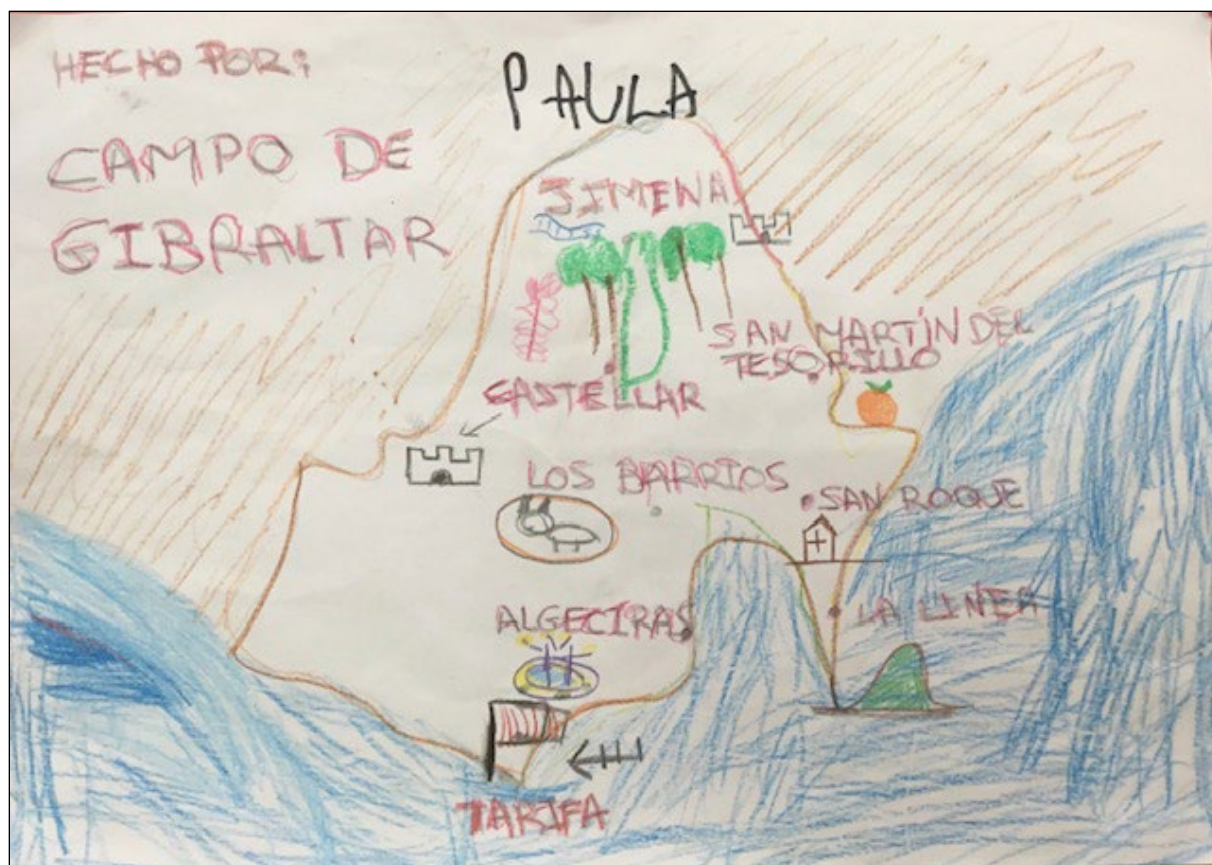 HECHO POR:
PAULA
CAMPO DE
GIBRALTAR
JIMENA
SAN MARTÍN DEL
TESORILLO
CASTELLAR
LOS BARRIOS
SAN ROQUE
ALGECIRAS
LA LINEA
TARIFA